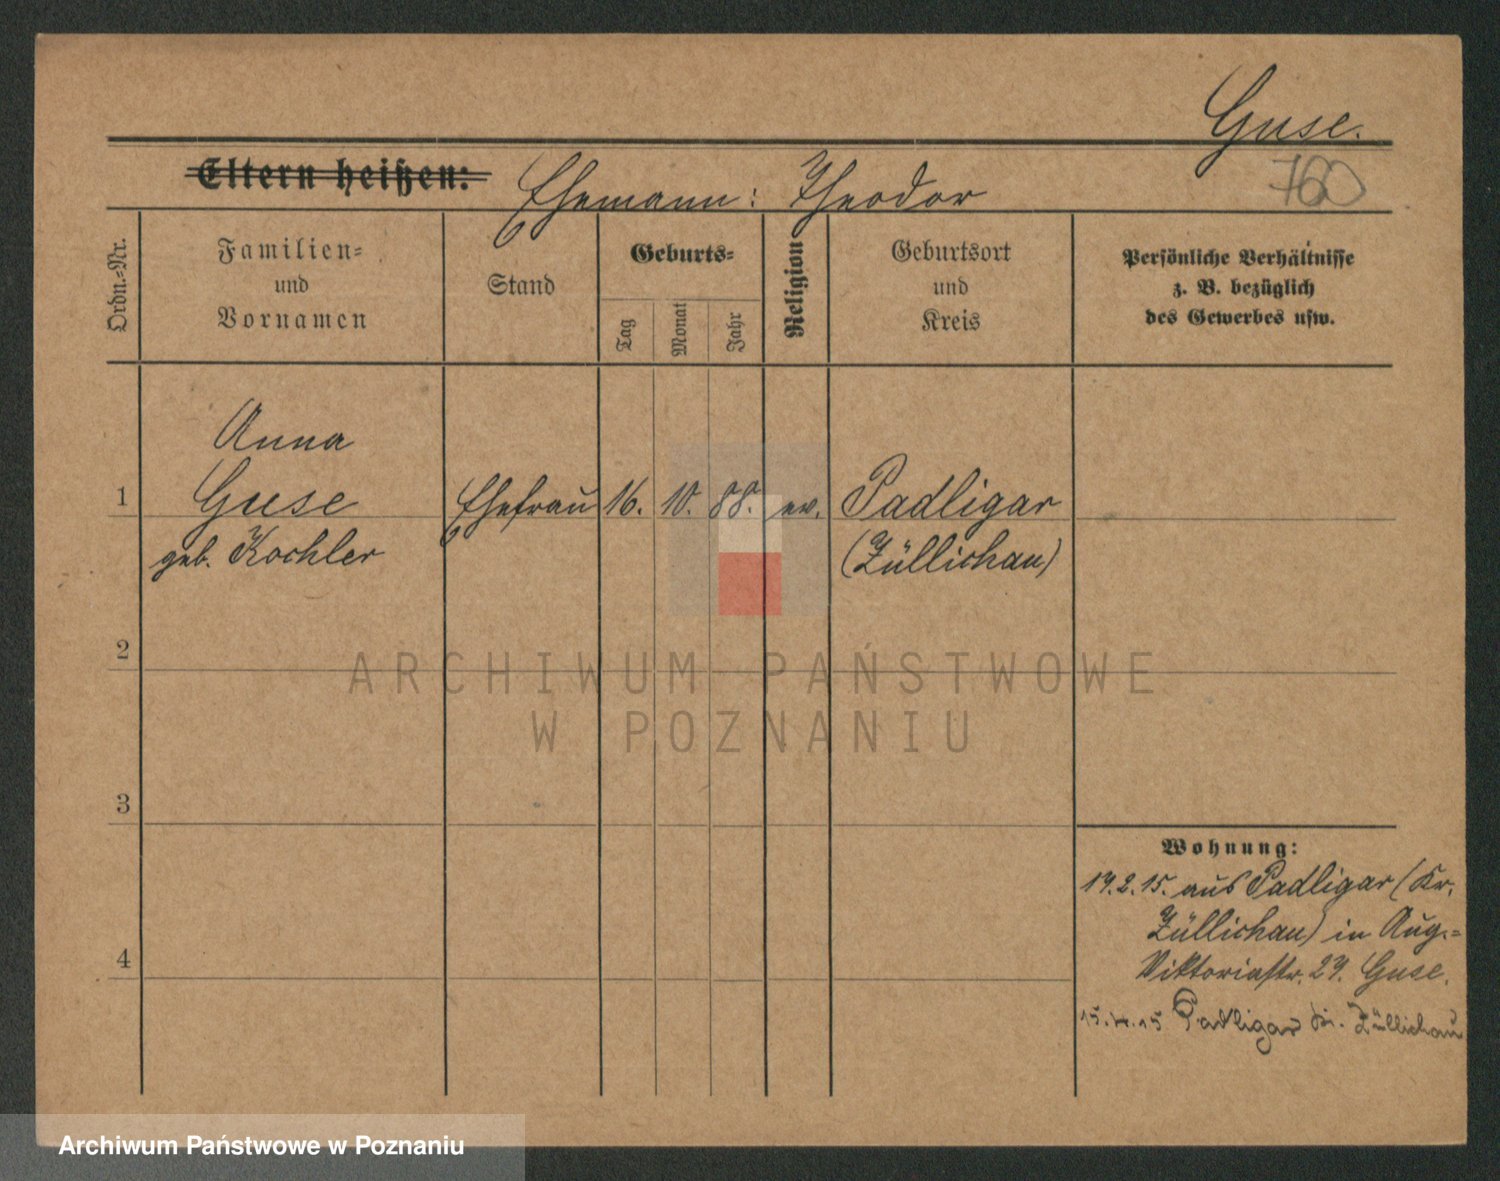 Guse.
760
Eltern heißen: Ehemann: Theodor
Ordn.-Nr.
Familien- und Vornamen
Stand
Geburts-
Tag
Monat
Jahr
Religion
Geburtsort und Kreis
Persönliche Verhältnisse
z. B. bezüglich
des Gewerbes usw.
Anna
1 Guse Ehefrau 16. 10. 88. ev. Padligar
geb. Kochler (Züllichau)
2
ARCHIWUM PAŃSTWOWE
W POZNANIU
3
Wohnung:
19.2.15. aus Padligar (Kr.
Züllichau) in Aug.-
4
Viktoriastr. 29. Guse.
15.4.15 Padligar Kr. Züllichau
Archiwum Państwowe w Poznaniu